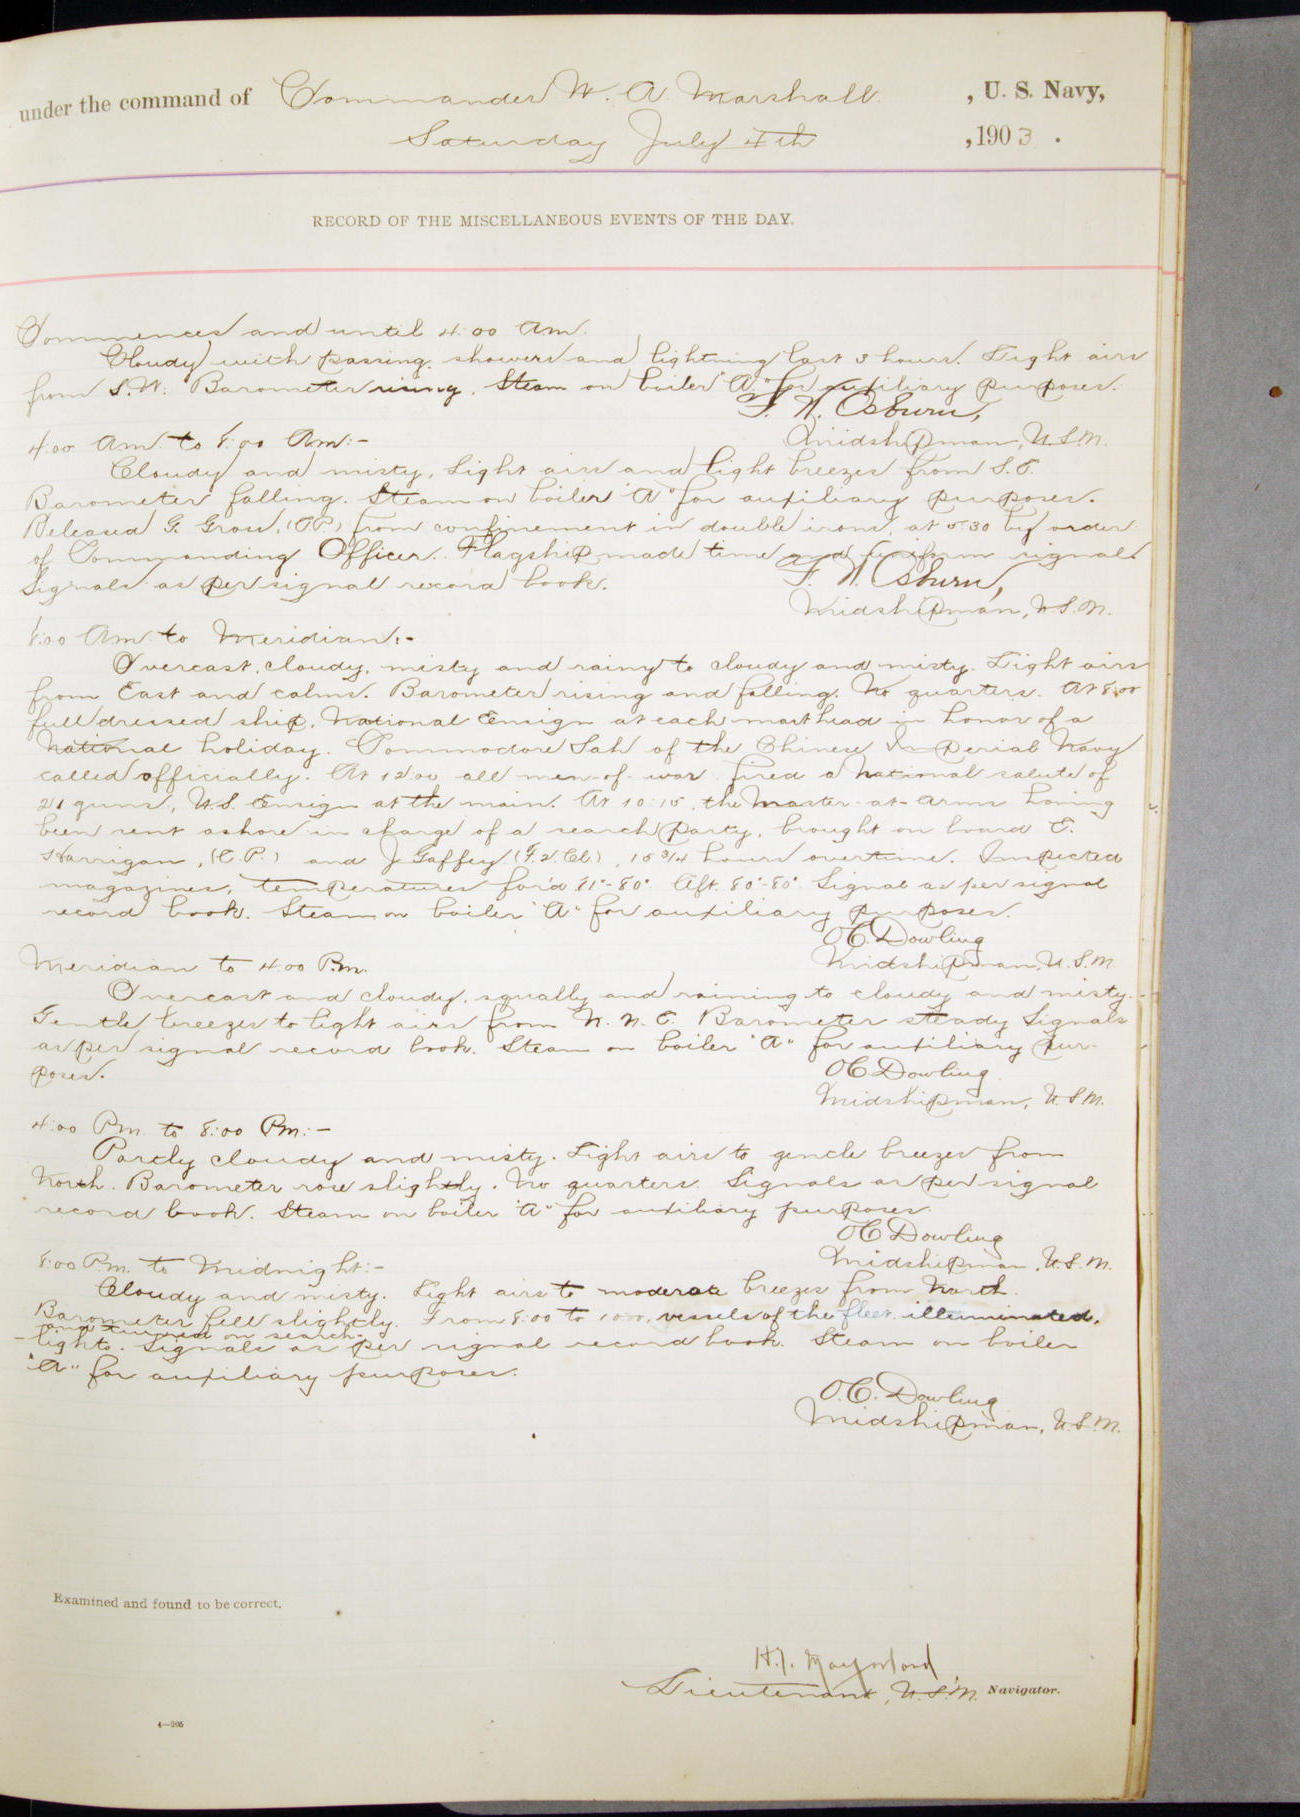 under the command of Commander W. A. Marshall , U. S. Navy,
Saturday July 4th , 1903 .
RECORD OF THE MISCELLANEOUS EVENTS OF THE DAY.
Commences and until 4:00 A.m.
Cloudy with passing showers and lightning last 3 hours. Light airs
from S.W. Barometer rising. Steam on boiler "A" for auxiliary purposes.
F. W. Osburn,
Midshipman, U.S.N.
4:00 Am. to 8:00 Am:-
Cloudy and misty, Light airs and light breezes from S.E.
Barometer falling. Steam on boiler "A" for auxiliary purposes.
Released G. Gross, (OP) from confinement in double irons, at 5:30 by order
of Commanding Officer. Flagship made time and uniform signal.
Signals as per signal record book.
F. W. Osburn,
Midshipman, U.S.N.
8:00 Am. to Meridian:-
Overcast, cloudy, misty and rainy to cloudy and misty. Light airs
from East and calms. Barometer rising and falling. No quarters. At 8:00
full dressed ship, National Ensign at each masthead in honor of a
National holiday. Commodore Sah of the Chinese Imperial Navy
called officially. At 12:00 all men-of-war fired a National salute of
21 guns, U.S. Ensign at the main. At 10:15, the Master-at-Arms having
been sent ashore in charge of a search party, brought on board E.
Harrigan, (C.P.) and J. Gaffey (F. 2. Cl.), 15 3/4 hours overtime. Inspected
magazines, temperatures for'd 81°-80° Aft. 80°-80° Signal as per signal
record book. Steam on boiler "A" for auxiliary purposes.
O.C. Dowling
Midshipman, U.S.N.
Meridian to 4:00 P.m.
Overcast and cloudy, squally and raining to cloudy and misty.
Gentle breezes to light airs from N.N.E. Barometer steady Signals
as per signal record book. Steam on boiler "A" for auxiliary pur-
poses.
O.C. Dowling
Midshipman, U.S.N.
4:00 Pm. to 8:00 Pm:-
Partly cloudy and misty. Light airs to gentle breezes from
North. Barometer rose slightly. No quarters. Signals as per signal
record book. Steam on boiler "A" for auxiliary purposes.
O.C. Dowling
Midshipman, U.S.N.
8:00 P.m. to Midnight:-
Cloudy and misty. Light airs to moderate breezes from North.
Barometer fell slightly. From 8:00 to 10:00, vessels of the fleet illuminated,
and turned on search-
lights. Signals as per signal record book. Steam on boiler
"A" for auxiliary purposes.
O.C. Dowling
Midshipman, U.S.N.
Examined and found to be correct.
Lieutenant, U.S.N. Navigator.
4—205